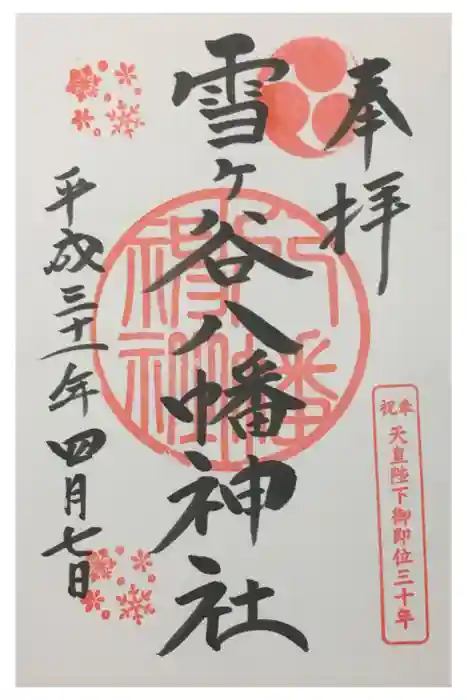 奉拝
奉祝
天皇陛下御即位三十年
雪ヶ谷八幡神社
平成三十一年四月七日